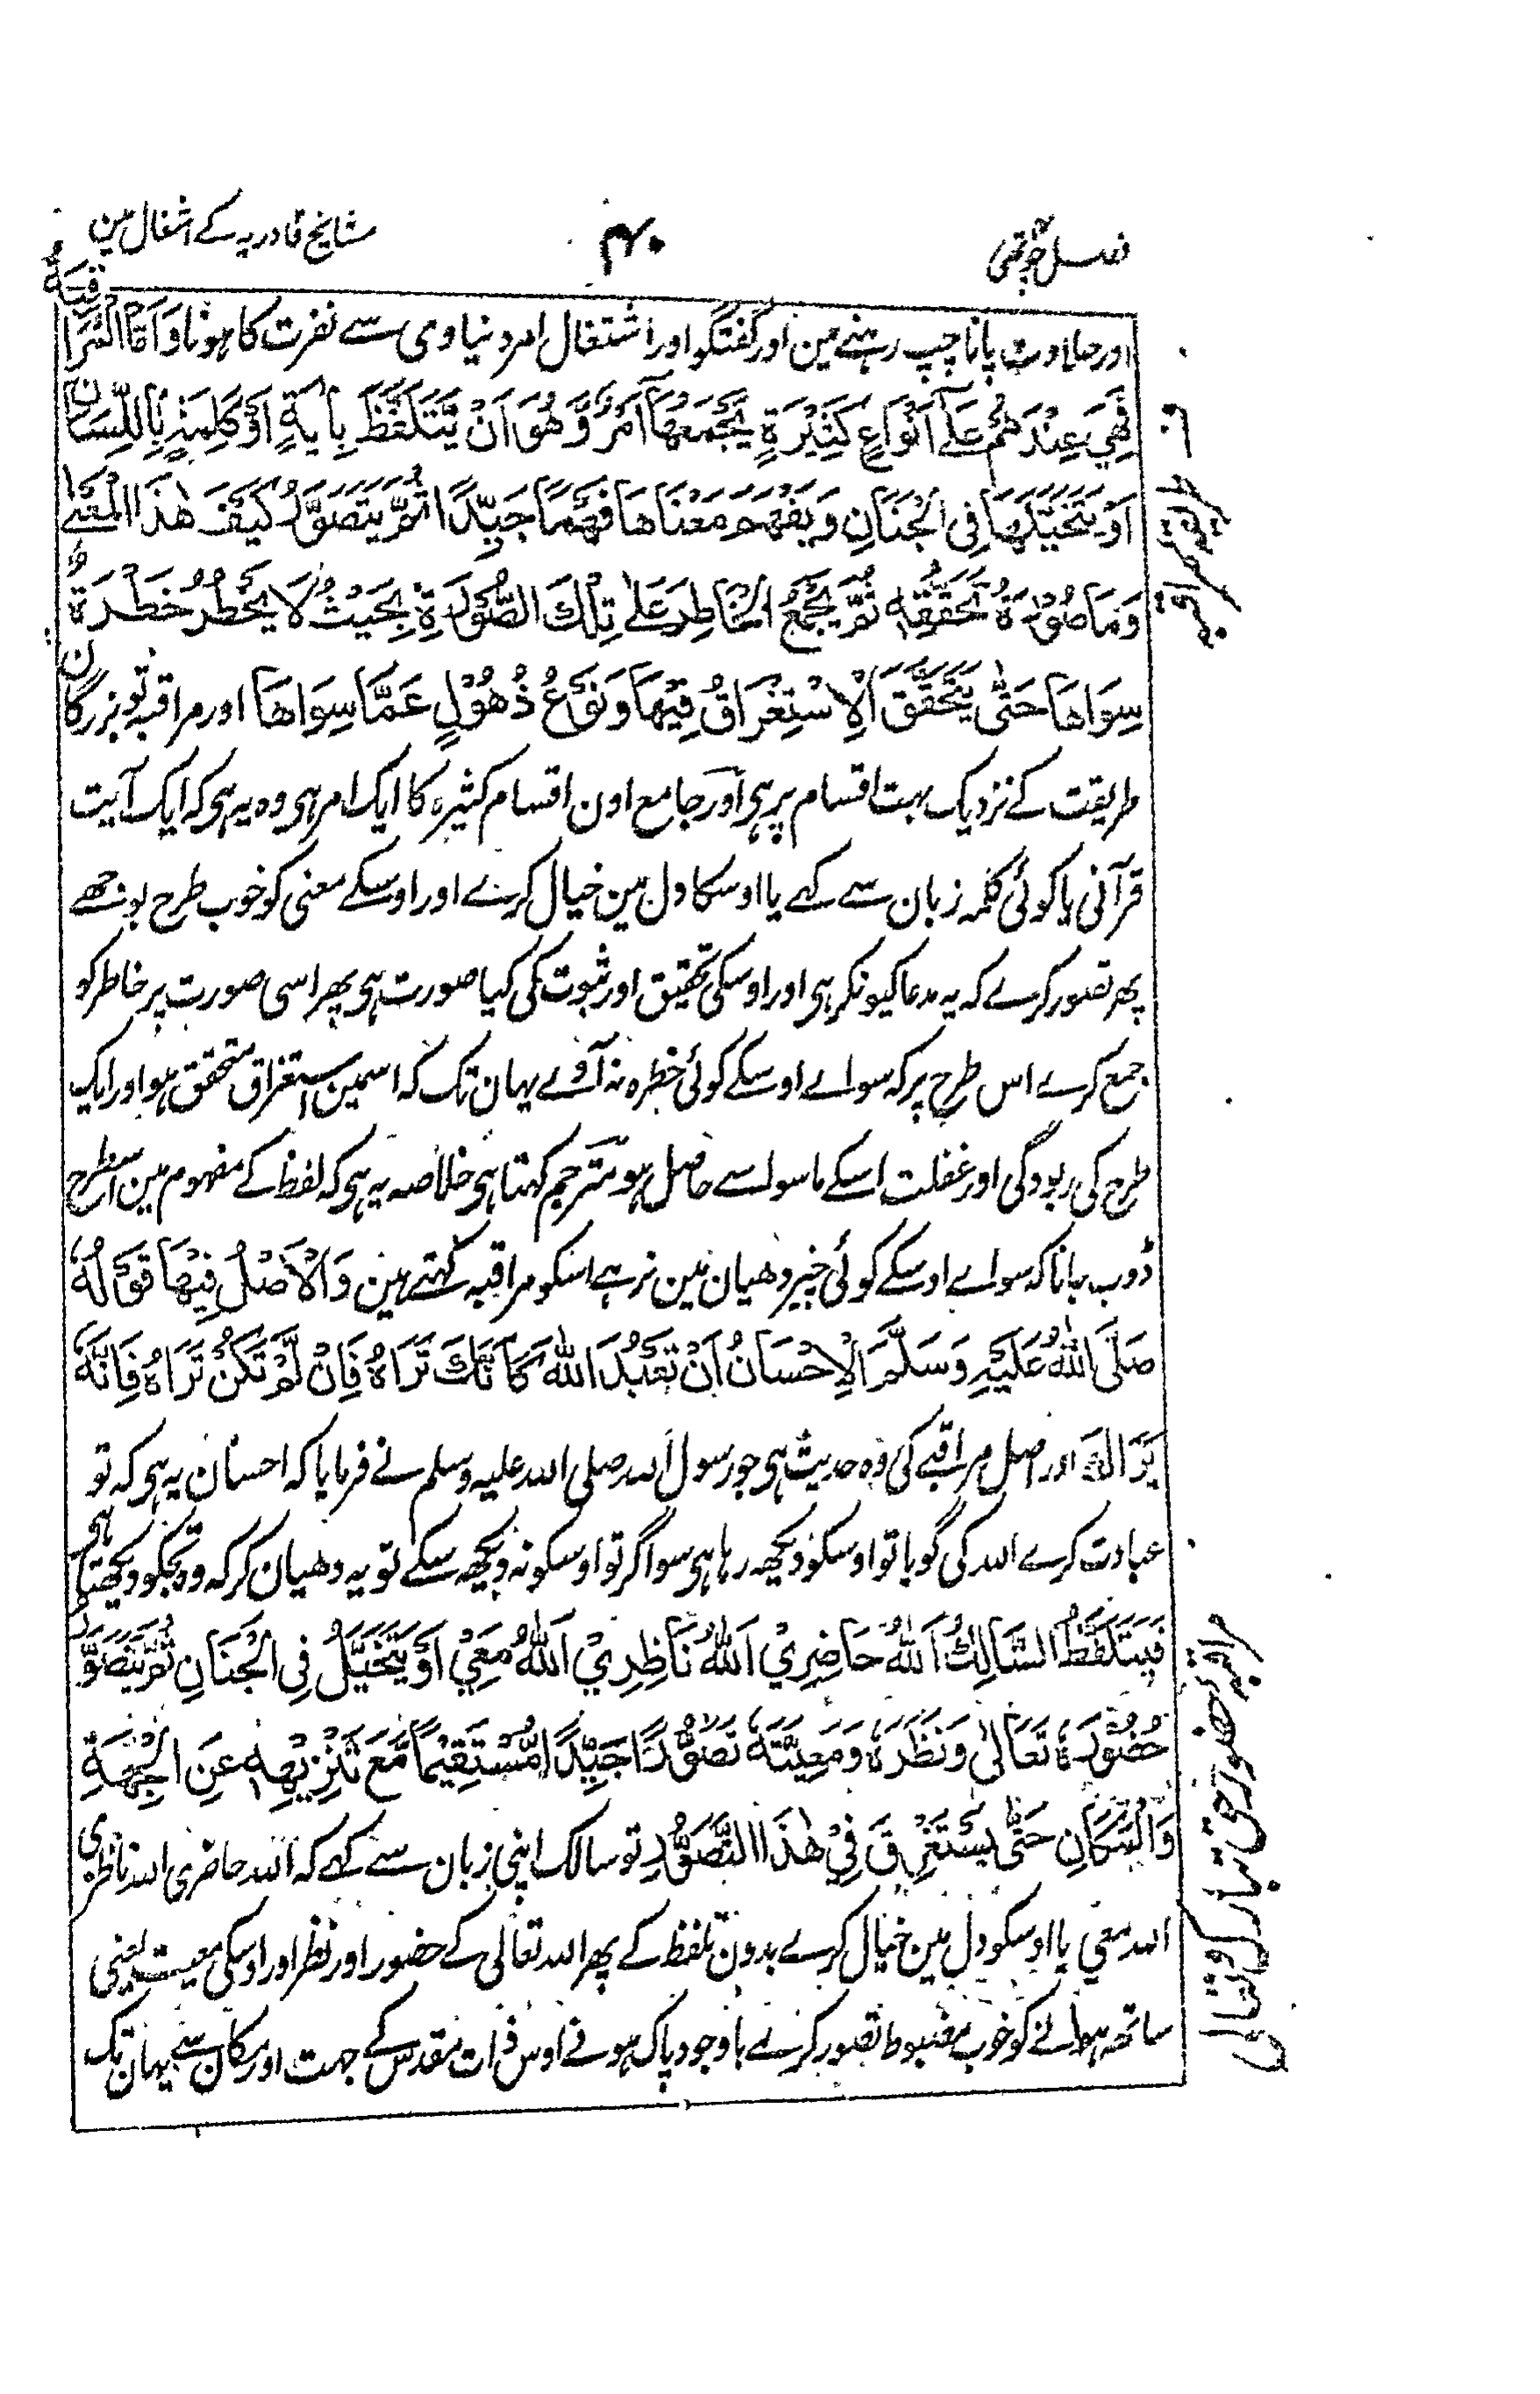 فصل چوتھی
۴۰
مشایخ قادریہ کے اشغال مین
اور حلاوت پانا چپ رہنے مین اور گفتگو اور اشتغال امر دنیاوی سے نفرت کا ہونا وَاَمَّا الْمُرَاقَبَةُ
فَهِيَ عِنْدَهُمْ عَلٰٓى اَنْوَاعٍ كَثِيْرَةٍ يَّجْمَعُهَا اَمْرٌ وَّهُوَ اَنْ يَّتَلَفَّظَ بِاٰيَةٍ اَوْ كَلِمَةٍ بِاللِّسَانِ
اَوْ يَتَخَيَّلَهَا فِى الْجَنَانِ وَيَفْهَمَ مَعْنَاهَا فَهْمًا جَيِّدًا ثُمَّ يَتَصَوَّرُ كَيْفَ هٰذَا الْمَعْنٰے
وَمَا صُوْرَةُ تَحَقُّقِهٖ ثُمَّ يَجْمَعُ الْخَاطِرَ عَلٰى تِلْكَ الصُّوْرَةِ بِحَيْثُ لَا يَخْطُرُ خَطْرَةٌ
سِوَاهَا حَتّٰى يَتَحَقَّقَ الْاِسْتِغْرَاقُ فِيْهَا وَنَوْعُ ذُهُوْلٍ عَمَّا سِوَاهَا اور مراقبہ تو بزرگان
طریقت کے نزدیک بہت اقسام پر ہی اور جامع اون اقسام کثیرہ کا ایک امر ہی وہ یہ ہی کہ ایک آیت
قرآنی یا کوئی کلمہ زبان سے کہے یا اوسکا دل مین خیال کرے اور اوسکے معنی کو خوب طرح بوجھے
پھر تصور کرے کہ یہ مدعا کیونکر ہی اور اوسکی تحقیق اور ثبوت کی کیا صورت ہی پھر اسی صورت پر خاطر کو
جمع کرے اس طرح پر کہ سواے اوسکے کوئی خطرہ نہ آوے یہان تک کہ اسمین استغراق متحقق ہو اور ایک
طرح کی ربودگی اور غفلت اسکے ماسوا سے حاصل ہو مترجم کہتا ہی خلاصہ یہ ہی کہ لفظ کے مفہوم مین اسطرح
ڈوب جانا کہ سواے اوسکے کوئی چیز دھیان مین نرہے اسکو مراقبہ کہتے ہین وَالْاَصْلُ فِيْهَا قَوْلُهٗ
صَلَّى اللّٰهُ عَلَيْهِ وَسَلَّمَ الْاِحْسَانُ اَنْ تَعْبُدَ اللّٰهَ كَاَنَّكَ تَرَاهُ فَاِنْ لَّمْ تَكُنْ تَرَاهُ فَاِنَّهٗ
يَرَاكَ اور اصل مراقبے کی وہ حدیث ہی جو رسول اللہ صلی اللہ علیہ وسلم نے فرمایا کہ احسان یہ ہی کہ تو
عبادت کرے اللہ کی گویا تو اوسکو دیکھ رہا ہی سو اگر تو اوسکو نہ دیکھ سکے تو یہ دھیان کر کہ وہ تجکو دیکھتا ہی
فَيَتَلَفَّظُ السَّالِكُ اَللّٰهُ حَاضِرِيْ اَللّٰهُ نَاظِرِيْ اَللّٰهُ مَعِيْ اَوْ يَتَخَيَّلُ فِى الْجَنَانِ ثُمَّ يَتَصَوَّرُ
حُضُوْرَهٗ تَعَالٰى وَنَظَرَهٗ وَمَعِيَّتَهٗ تَصَوُّرًا جَيِّدًا مُّسْتَقِيْمًا مَّعَ تَنْزِيْهِهٖ عَنِ الْجِهَةِ
وَالْمَكَانِ حَتّٰى يَسْتَغْرِقَ فِيْ هٰذَا التَّصَوُّرِ تو سالک اپنی زبان سے کہے کہ اللہ حاضری اللہ ناظری
اللہ معی یا اوسکو دل مین خیال کرے بدون تلفظ کے پھر اللہ تعالی کے حضور اور نظر اور اوسکی معیت یعنی
ساتھ ہونے کو خوب مضبوط تصور کرے باوجود پاک ہونے اوس ذات مقدس کے جہت اور مکان سے یہان تک
مراقبہ
مراقبہ حضور حق تبارک وتعالی